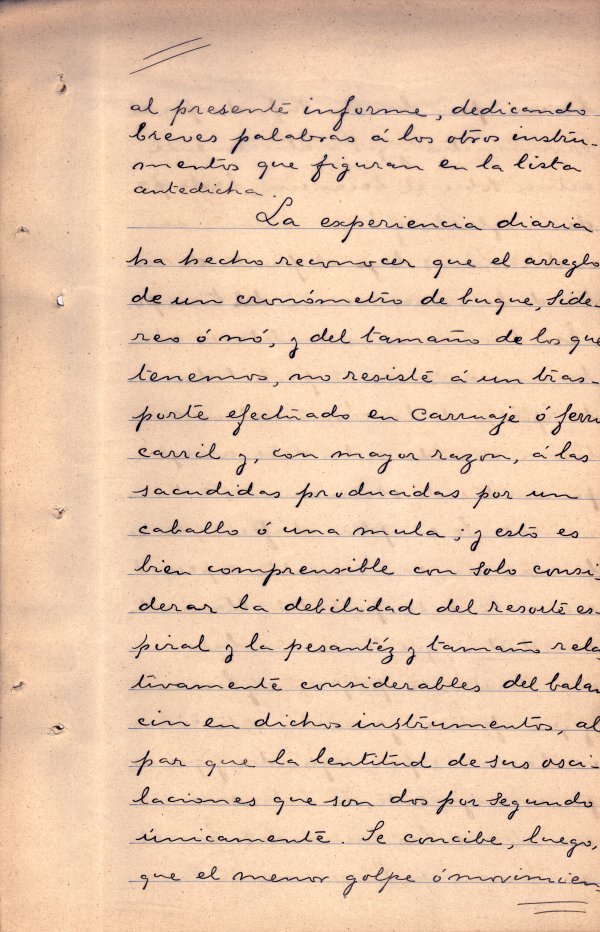 al presente informe, dedicando
breves palabras á los otros instru-
mentos que figuran en la lista
antedicha.
La experiencia diaria
ha hecho reconocer que el arreglo
de un cronómetro de buque, side-
reo ó nó, y del tamaño de los que
tenemos, no resiste á un tras-
porte efectuado en carruaje ó ferro
carril y, con mayor razon, á las
sacudidas producidas por un
caballo ó una mula; y esto es
bien comprensible con solo consi-
derar la debilidad del resorte es-
piral y la pesantéz y tamaño rela
tivamente considerables del balan
cin en dichos instrumentos, al
par que la lentitud de sus osci-
laciones que son dos por segundo
únicamente. Se concibe, luego,
que el menor golpe ó movimien-